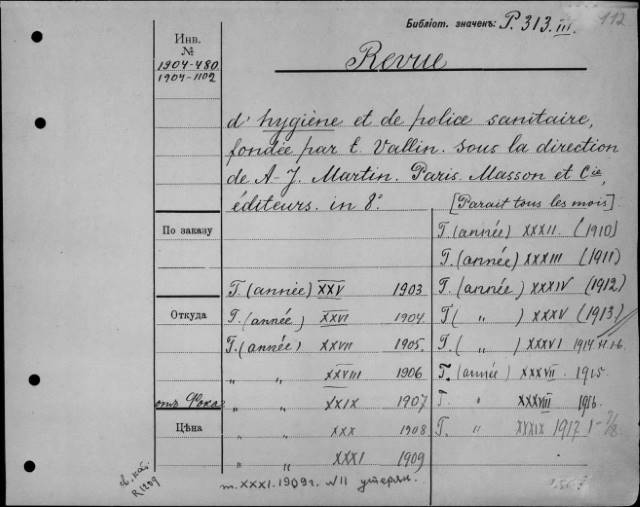 Библіот. значекъ: P. 313. III. 112
Инв.
№
1904-480
1904-1102
Revue
d'hygiène et de police sanitaire,
fondée par E. Vallin. sous la direction
de A-J. Martin. Paris. Masson et Cie,
éditeurs. in 8°.
[Parait tous les mois]
По заказу
Откуда
отъ
Цѣна
T. (année) XXV 1903
T. (année) XXVI 1904
T. (année) XXVII 1905.
„ „ XXVIII 1906
„ XXIX 1907
„ „ XXX 1908
„ „ XXXI 1909
T. (année) XXXII. (1910)
T. (année) XXXIII (1911)
T. (année) XXXIV (1912)
T. ( „ ) XXXV (1913)
T. ( „ ) XXXVI 1914
T. (année) XXXVII 1915.
T. „ XXXVIII 1916.
T. „ XXXIX 1917 1-7/8
т. XXXI. 1909г. №11 утерян.
св. кат.
R1239